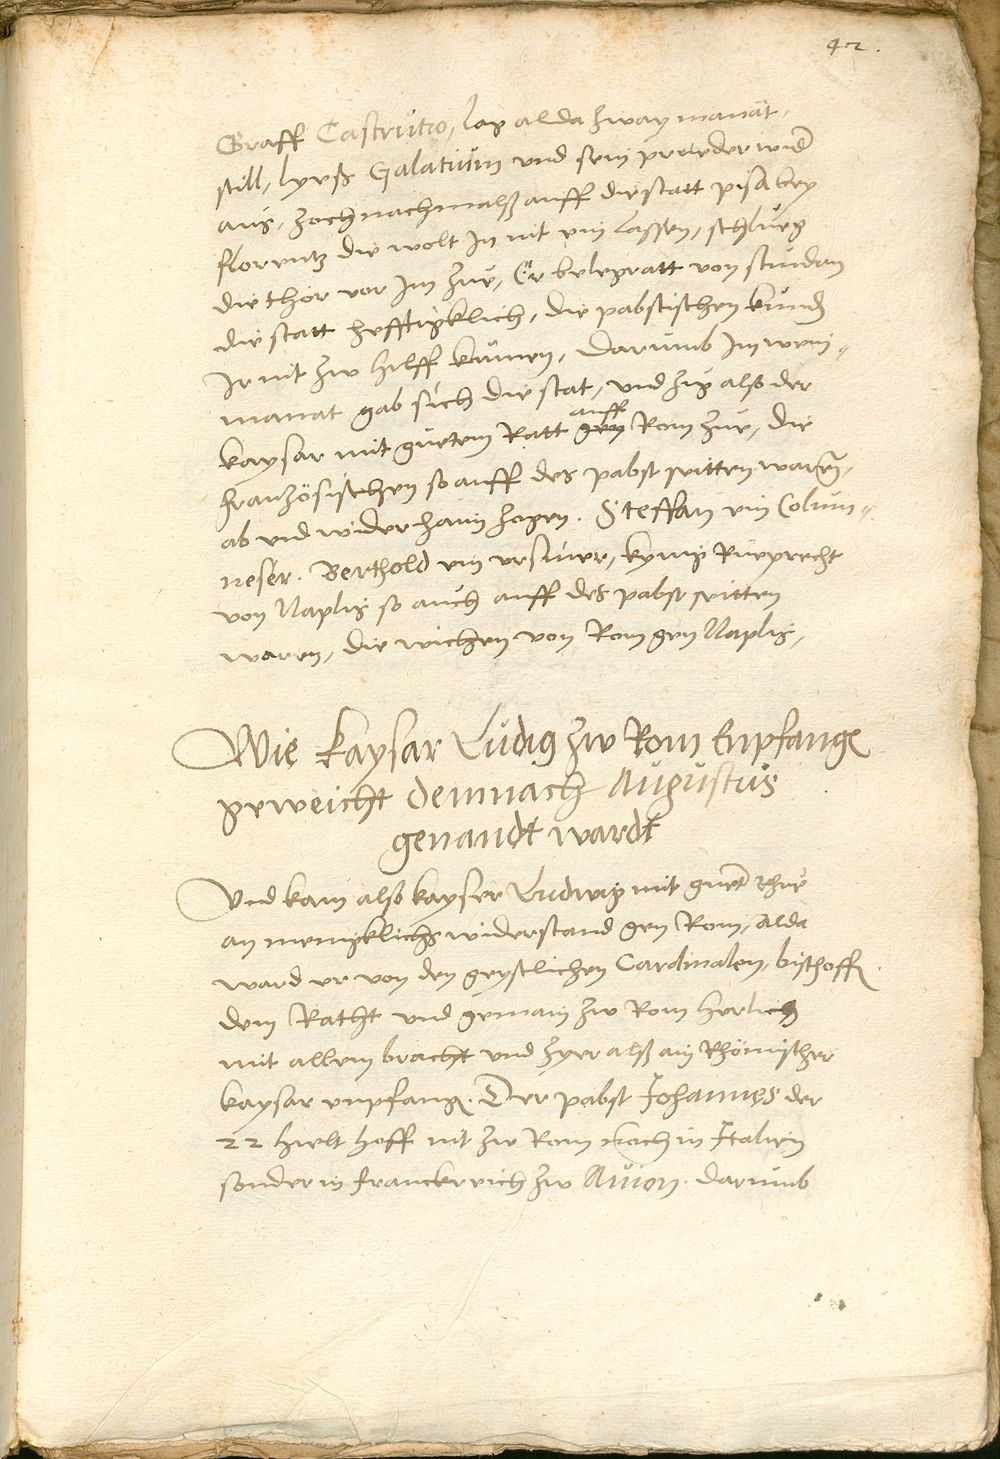 42.
Graff Castrutio, lag alda zway manat
still, lyeß Galatium und sein prueder wid
aus, zoch nachmalß auff die statt pisa bey
florentz die wolt In nit ein lassen, schlueg
die thor vor Im zue, Er belegratt von stundan
die statt hefftigklich, die pabstischen kundñ
Ir nit zw hilff kumen, darumb Im ein =
manat gab sich die stat, und zug also der
kaysar mit guetem Ratt auff gen Rom zue, die
französischen so auff des pabst seitten warñ,
ab und wider haim zogen. Steffan ein Colum =
neser. Berthold ein ursiner, kynig Rueprecht
von Naplis so auch auff des pabst seitten
waren, die wichen von Rom gen Naplis,
Wie kaysar Ludig zw Rom Enpfangē
geweicht demnach Augustus
genandt wardt
Und kam also kayser Ludwig mit guet rhue
an menigklichs widerstand gen Rom, alda
ward er von den geystlichen Cardinalen, bischoffē
dem Ratht und gemain zw Rom herlich
mit allem bracht und zyer alß ain Rhömischer
kaysar enpfangē. Der pabst Johannes der
22 hielt hoff nit zw Rom noch in Italien
sonder in franckreich zw Avion. darumb